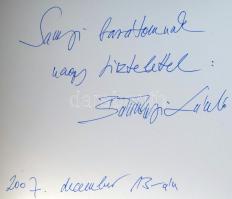 Sanyi barátomnak
nagy tisztelettel :
László
2007. december 13-án